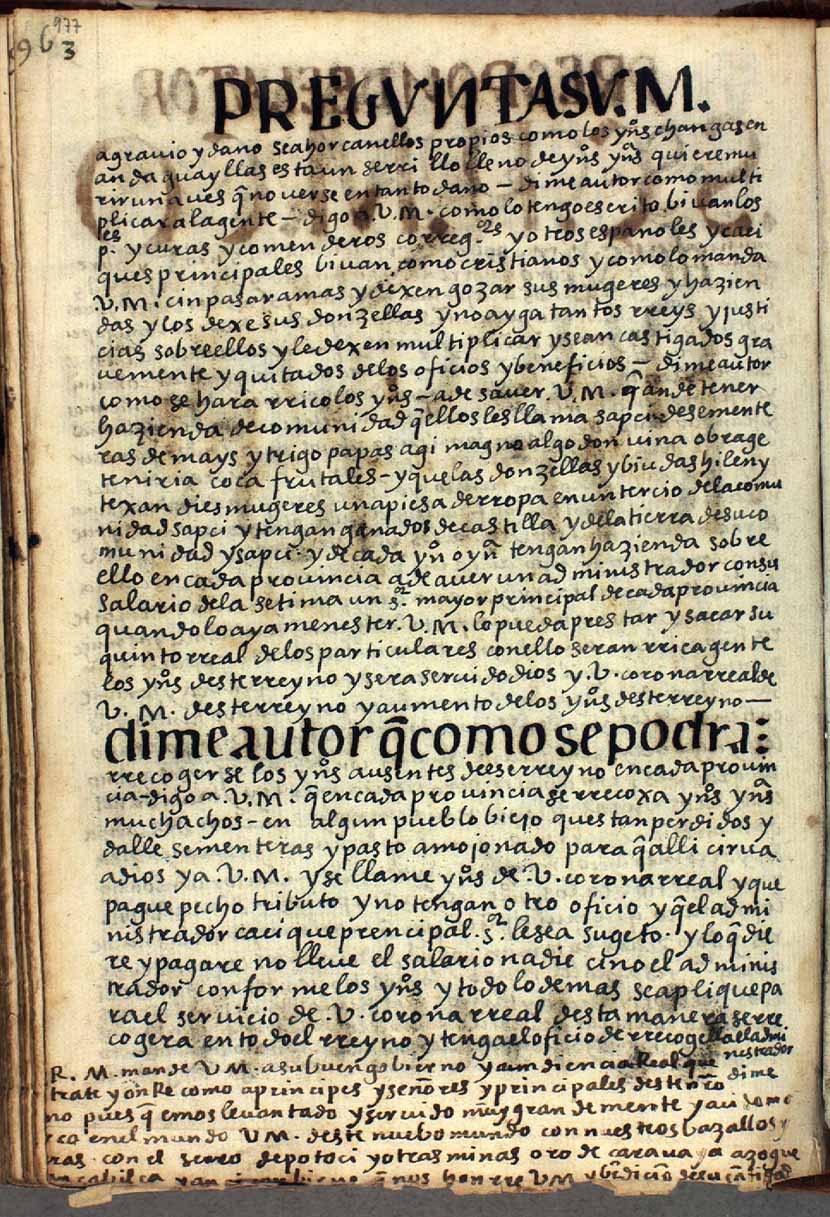 963
977
PREGVNTA SV. M.
agrauio y daño se ahorcan ellos propios como los yn̄s changas en
andaguayllas esta un serrillo lleno de yn̄s yn̄s quieremu
rir una ues q̄ no uerse en tanto daño – dime autor como multi
plicara la gente – digo a .V.M. como lo tengo escrito biuan los
p.es y curas y comenderos correg.es y otros españoles y caci
ques principales biuan como cristianos y como lo manda
.V.M. cin pasar a mas y dexen gozar sus mugeres y hazien
das y los dexe sus donzellas y no ayga tantos rreys y justi
cias sobre ellos y le dexen multiplicar y sean castigados gra
uemente y quitados de los oficios y beneficios – dime autor
como se hara rrico los yn̄s – a de sauer .V.M. q̄ an de tener
hazienda de comunidad q̄ ellos les llama sapci de semente
ras de mays y trigo papas agi magno algodon uina obrage
teniria coca frutales – y que las donzellas y biudas hilen y
texan dies mugeres una piesa de rropa en un tercio de la comu
nidad sapci y tengan ganados de castilla y de la tierra de su co
munidad y sapci y de cada yn̄ o yn̄ tengan hazienda sobre
ello en cada prouincia a de auer un administrador con su
salario de la setima un s.or mayor principal de cada prouincia
quando lo aya menester .V.M. lo pueda prestar y sacar su
quinto rreal de los particulares con ello seran rrica gente
los yn̄s deste rreyno y sera seruido dios y .V. corona rreal de
V.M. deste rreyno y aumento de los yn̄s deste rreyno –
dime autor q̄ como se podra:
rrecogerse los yn̄s ausentes de ese rreyno en cada prouin
cia – digo a .V.M. q̄ en cada prouincia se rrecoxa yn̄s yn̄s
muchachos – en algun pueblo biejo questan perdidos y
dalle sementeras y pasto amojonado para q̄ alli cirua
a dios y a .V.M. y se llame yn̄s de .V. corona rreal y que
pague pecho tributo y no tengan otro oficio y q̄ el admi
nistrador cacique prencipal s.or le sea sugeto y lo q̄ die
re y pagare no lleue el salario nadie cino el adminis
trador conforme los yn̄s y todo lo demas se aplique pa
ra el seruicio de .V. corona rreal desta manera se rre
cogera en todo el rreyno y tenga el oficio de rrecogella el admi
nestrador
R. M. mande V.M. a su buen gobierno y audiencia Real que
dime
trate y onRe como a principes y señores y principales deste
no pues q̄ emos leuantado y seruido muy grandemente y
en el mundo V.M. deste nuebo mundo con nuestros bazallos y
con el serro de potoci y otras minas oro de carauaya azogue
q̄ nos honrre V.M. y